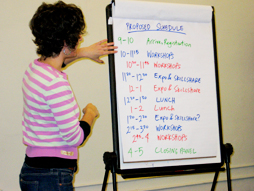 PROPOSED SCHEDULE
9-10 Arrive, Registration
10-11¹⁵ WORKSHOPS
10³⁰-11¹⁵ WORKSHOPS
Expo & Skillshare
12-1 Expo & Skillshare
LUNCH
1-2 LUNCH
Expo & Skillshare?
WORKSHOPS
WORKSHOPS
4-5 CLOSING PANEL